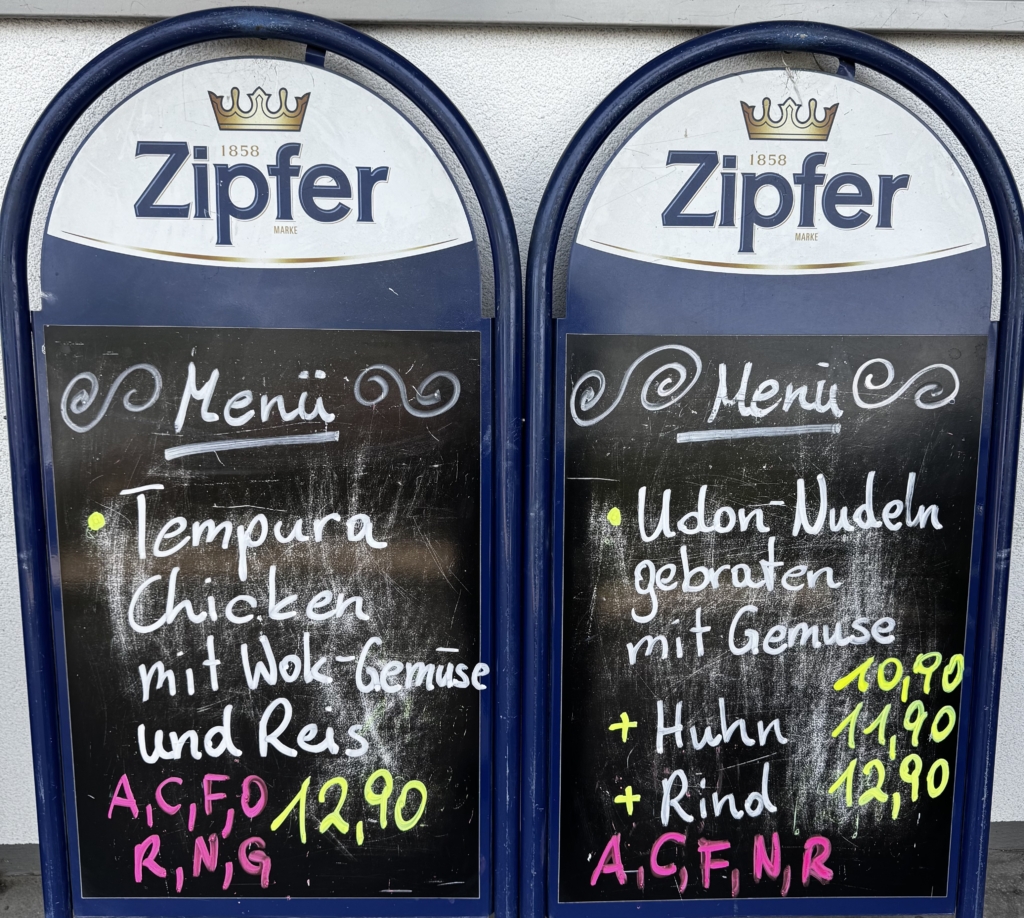 1858
Zipfer
MARKE
Menü
• Tempura
Chicken
mit Wok-Gemüse
und Reis
A,C,F,O 12,90
R,N,G
1858
Zipfer
MARKE
Menü
• Udon-Nudeln
gebraten
mit Gemuse
10,90
+ Huhn 11,90
+ Rind 12,90
A,C,F,N,R